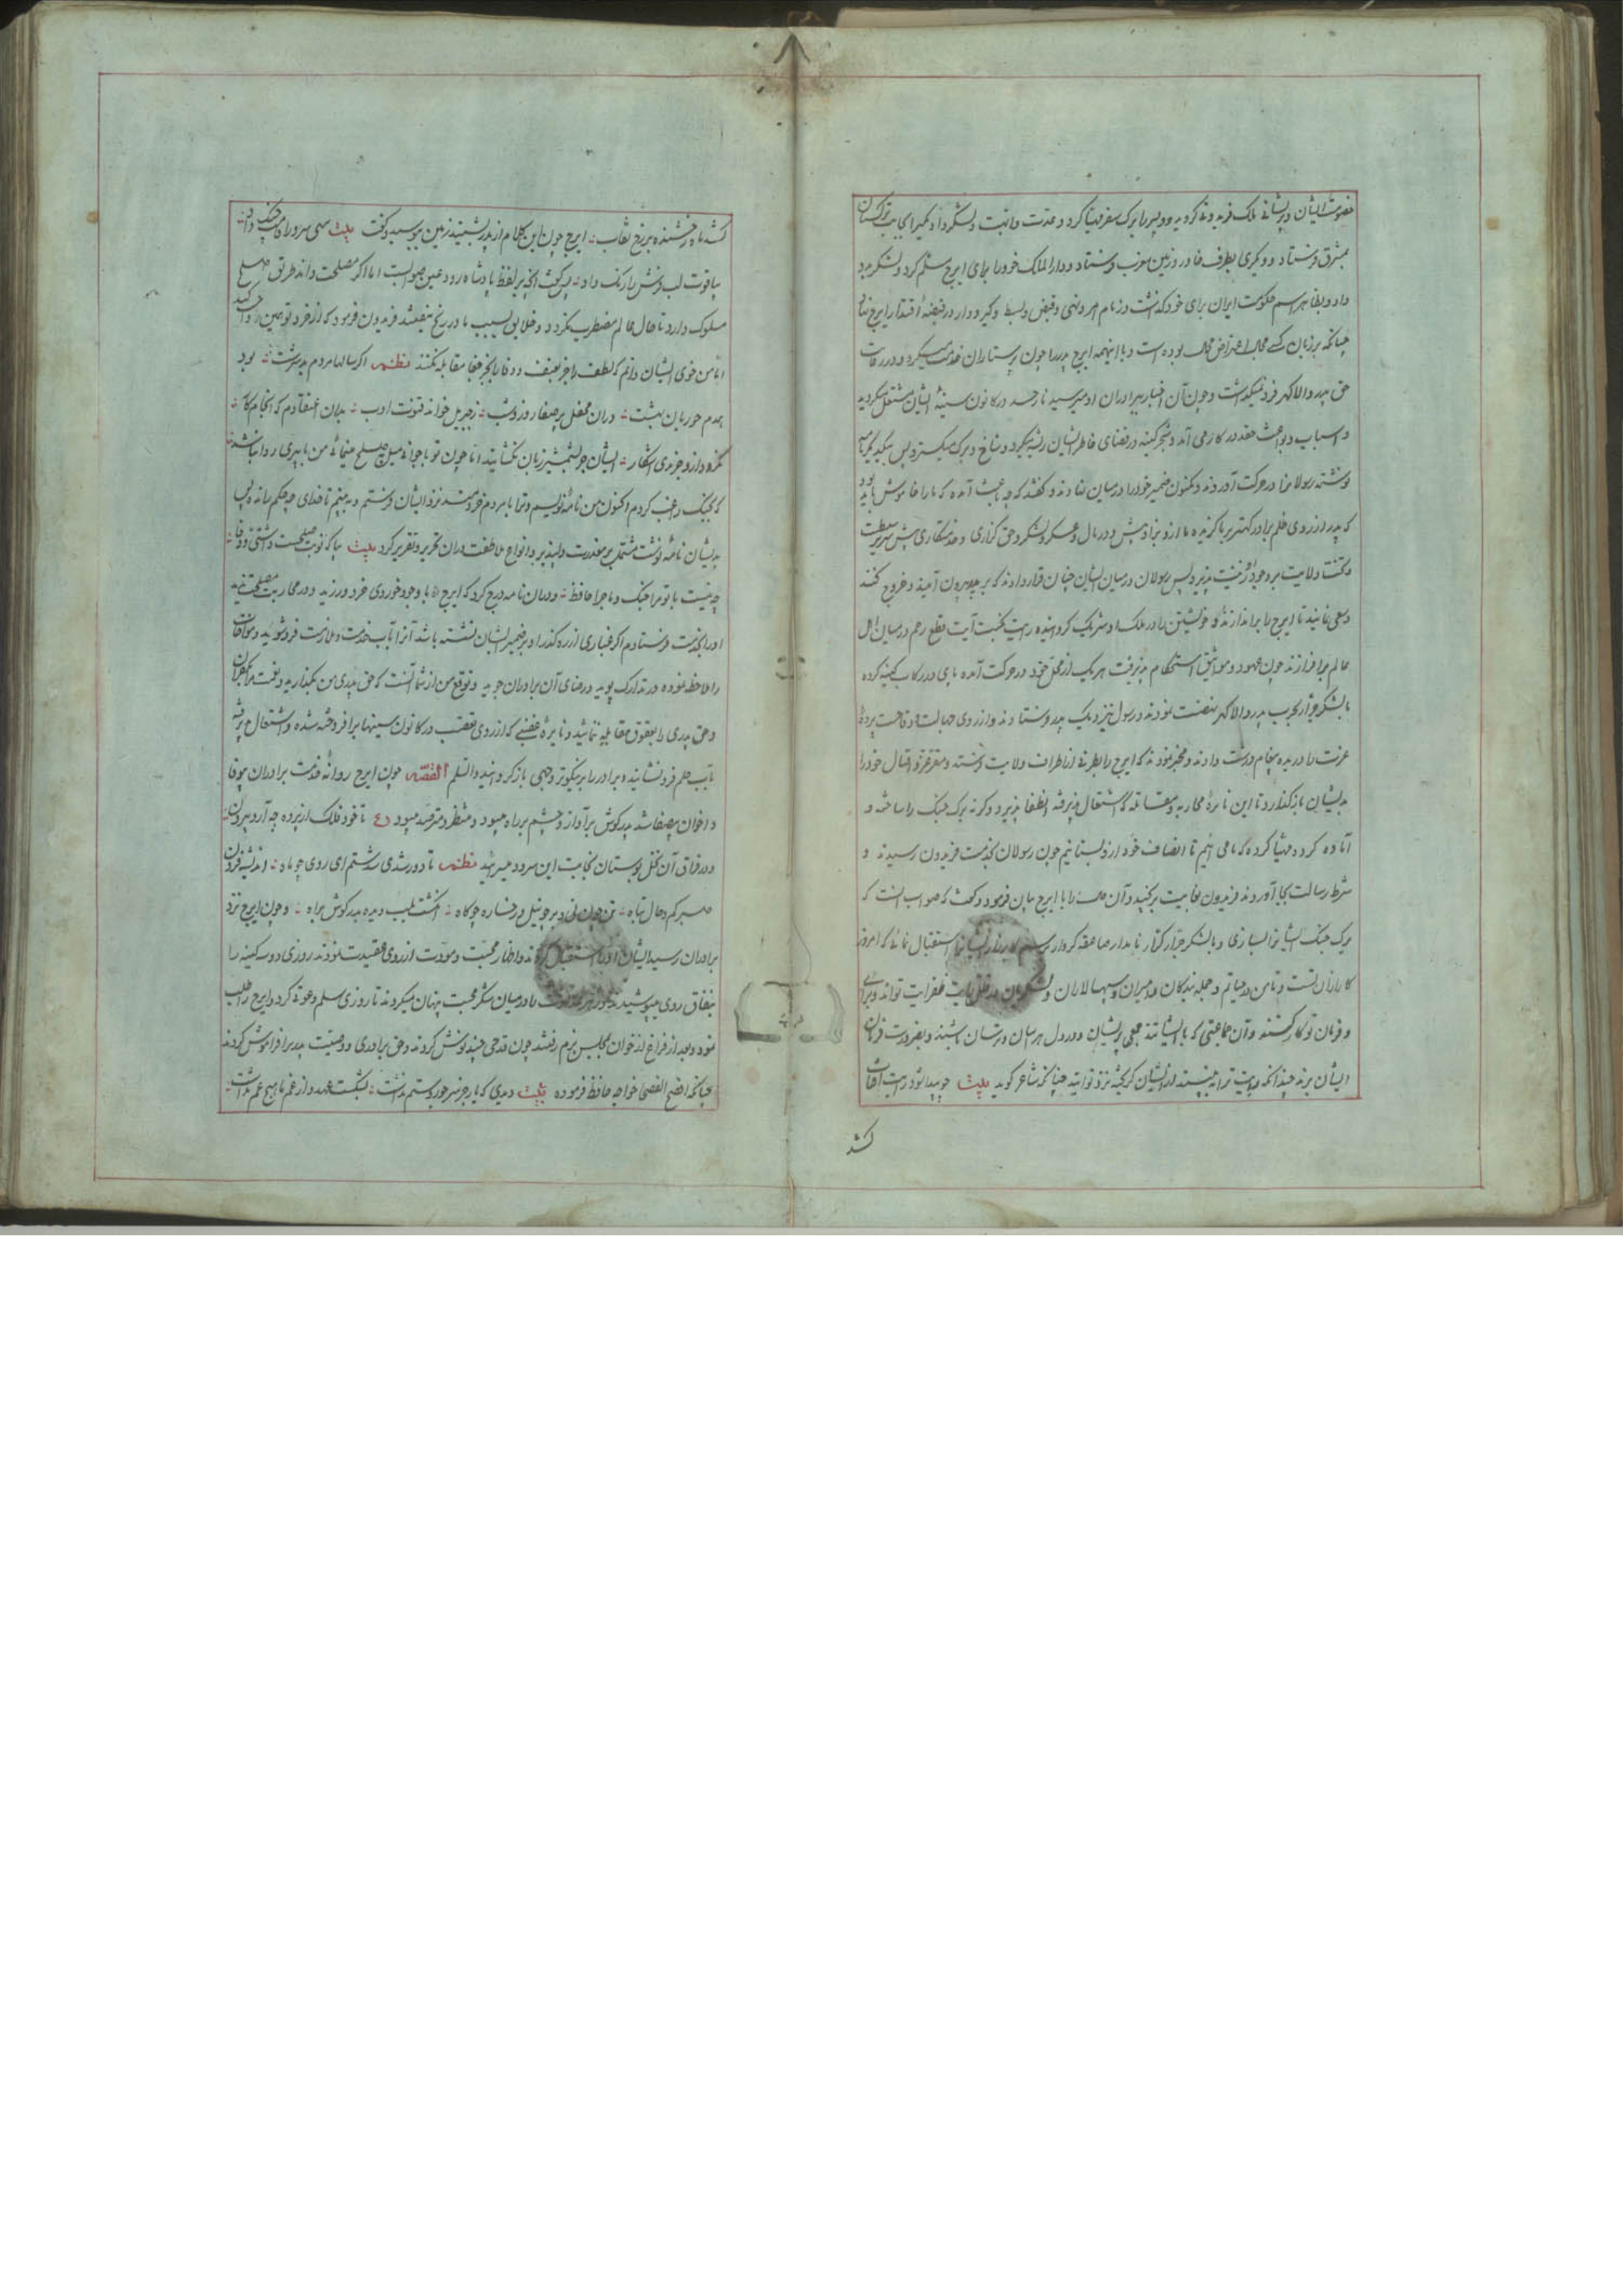 خصومت ایشان و پریشانی ملک فریدون گردید و دو پسر را برک سفر مهیا کرد و عدت و اهبت و لشکر داد و یکی را بجانب ترکستان
بمشرق فرستاد و دیگری بطرف خاور زمین مغرب فرستاد و دار الملک خود را برای ایرج مسلم کرد و لشکر مرد
داد و بظاهر اسم حکومت ایران برای خود گذاشت و زمام امر و نهی و قبض و بسط و گیر و دار در قبضه اقتدار ایرج نهاد
چنانکه بر زبان کسی مجال اعتراض محال بوده است و با اینهمه ایرج پدر را چون پرستاران خدمت میکرد و در رعایت
حق پدر والا گهر فرو نمیگذاشت و چون آن اخبار ببرادران او میرسید نار حسد در کانون سینه ایشان مشتعل میگردید
و اسباب و بواعث حقد در کار می آمد و شجر کینه در فضای خاطر ایشان ریشه میکرد و شاخ و برک میگسترد پس بیکدیگر نامه
نوشته رسولانرا در حرکت آوردند و مکنون ضمیر خود را در میان نهادند و گفتند که چه باعث آمده که ما را خاموش باید بود
که پدر از روی ظلم برادر کهتر بر ما گزیده ما از و بزاد بیش و در مال و عسکر و لشکر و حق گزاری و خدمتکاری بیش سریر سلطنت
و تخت ولایت بوجود او زینت پذیرد پس رسولان در میان ایشان چنان قرار دادند که بر پدر بیرون آمیند و خروج کنند
و سعی نمایند تا ایرج را براندازند و خویشتن را در ملک او شریک گردانیده رایت نکبت آیت قطع رحم در میان اهل
عالم برافرازند چون عهود و مواثیق استحکام پذیرفت هر یک از محل خود در حرکت آمده پای در رکاب کینه کرده
با لشکر جرار بحرب پدر والا گهر نهضت نمودند و رسول نیز بنزدیک پدر فرستادند و از روی جهالت و وقاحت پرده
عزت را دریده پیغام درشت دادند و مخبر نمودند که ایرج را بطرفی از اطراف ولایت فرستد و مقر عز و اقبال خود را
بدیشان بازگذارد تا این نایره محاربه و مقاتله که اشتعال پذیرفته انطفا پذیرد وگرنه برک جنک را ساخته و
آماده کرده و مهیا کرده که ما می آئیم تا انصاف خود از و بستانیم چون رسولان بخدمت فریدون رسیدند و
شرط رسالت بجا آوردند فریدون بغایت برنجید و آن حدیث را با ایرج بیان فرمود و گفت که صواب آنست که
برک جنک ایشانرا بسازی و با لشکر جرار کرار نامدار صاعقه کردار برسم کارزار ایشانرا استقبال نمائی که امروز
کارزاران تست و تا من در حیاتم و جمله بندگان و امیران و سپهسالاران و لشکریان در ظل رایت ظفر آیت تواند و برای
و فرمان تو کار کنند و آن جماعتی که با ایشانند جمعی پریشان و در دل هراسان و ترسان باشند و بضرورت فرمان
ایشان برند چندانکه رایت ترا بینند از ایشان گریخته نزد تو آیند چنانکه شاعر گوید بیت چو پیدا شود رایت آفتاب
کشد
کشد ماه رخشنده بر رخ نقاب ایرج چون این کلام از پدر بشنید زمین ببوسید و گفت بیت سهی سرو را تاب و جنک داد
بیاقوت لب نوش را رنک داد پس گفت آنچه بر لفظ پادشاه رود عین صوابست اما اگر مصلحت داند طریق صلح
مسلوک دارد تا حال عالم مضطرب نگردد و خلایق بسبب ما در رنج نیفتند فریدون فرمود که از خرد تو همین روا کند
اما من خوی ایشان دانم که لطف را جز بعنف و وفا را بجز جفا مقابله نکنند نظم اگر سالها مردم بد سرشت بود
همدم حوریان بهشت در ان محفل پر صفا روز و شب ز جبریل خواند فنونت ادب بدان اعتقادم که انجام کار
نگردد ازو جز بدی آشکار ایشان جز بشمشیر زبان نگشایند اما چون تو با جوانی میل صلح مینمائی من با پیری روا نباشد
که بجنک رغبت کردم اکنون من نامه نویسم و ترا با مردم خردمند نزد ایشان فرستم و به بینم تا خدای چه حکم رانده پس
بدیشان نامه نوشت مشتمل بر معذرت دلپذیر و انواع ملاطفت در ان تحریر و تقریر کرد بیت بیا که نوبت صلحست و آشتی و وفا
چه نیست با تو مرا جنک و ماجرا حافظ و در ان نامه درج کرد که ایرج با وجود خوردی خرد ورزید و در محاربت مصلحت ندید
او را بخدمت فرستادم اگر غباری از ره گذر او بر ضمیر ایشان نشسته باشد آنرا بآب خدمت و ملازمت فرو شوئید و موافقت
را ملاحظه نموده در تدارک پوید و رضای آن برادران جوید و توقع من از شما آنست که حق پدری من بگذارید و نعمت مرا بکفران
و حق پدری را بعقوق مقابله ننمائید و نایره غضبی که از روی تعصب در کانون سینها برافروخته شده و اشتعال پذیرفته
بآب حلم فرو نشانید و برادر را بر نیکوتر وجهی باز گردانید والسلم القصه چون ایرج روانه خدمت برادران بیوفا
و اخوان بیصفا شد پدر گوش بر آواز و چشم بر راه میبود و منتظر و مترقب میبود ع تا خود فلک از پرده چه آرد بیرون
و در فراق آن نخل بوستان نجابت این سرود میسرائید نظم تا دور شدی زمن شدستم ای روی چو ماه اندیشه فزون
صبر کم و حال تباه تن چون نی و بر چو نیل و رخساره چو کاه انگشت بلب دیده بدر گوش براه و چون ایرج نزد
برادران رسید ایشان او را استقبال کردند و اظهار محبت و مودت از روی عقیدت نمودند روزی دو سه کینه را
بنفاق روی میپوشیدند و زهر عداوت را در میان شکر محبت پنهان میکردند تا روزی سلم دعوتی کرد و ایرج را طلب
نمود و بعد از فراغ از خوان بمجلس بزم رفتند چون قدحی چند نوش کردند و حق برادری و وصیت پدر را فراموش کردند
چنانکه افصح الفصحا خواجه حافظ فرموده بیت دیدی که یار جز سر جور و ستم نداشت بشکست عهد و از غم ما هیچ غم نداشت